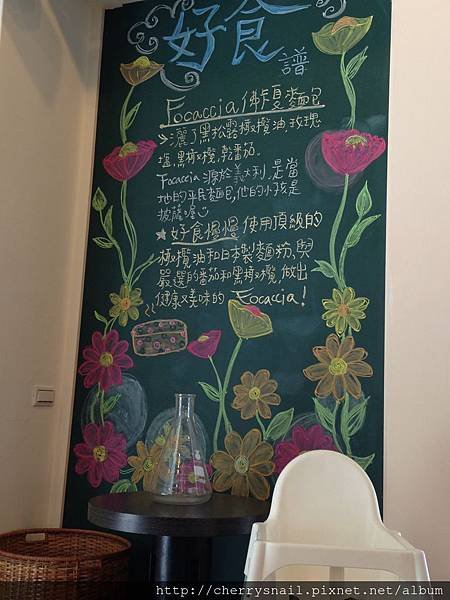 好食
譜
Focaccia 佛卡夏麵包
灑了黑松露橄欖油,玫瑰
塩,黑橄欖,乾番茄.
Focaccia 源於義大利,是當
地的平民麵包,他的小孩是
披薩喔
★ 好食慢慢 使用頂級的
橄欖油和日本製麵粉,與
嚴選的番茄和黑橄欖,做出
健康又美味的 Focaccia!
http://cherrysnail.pixnet.net/album